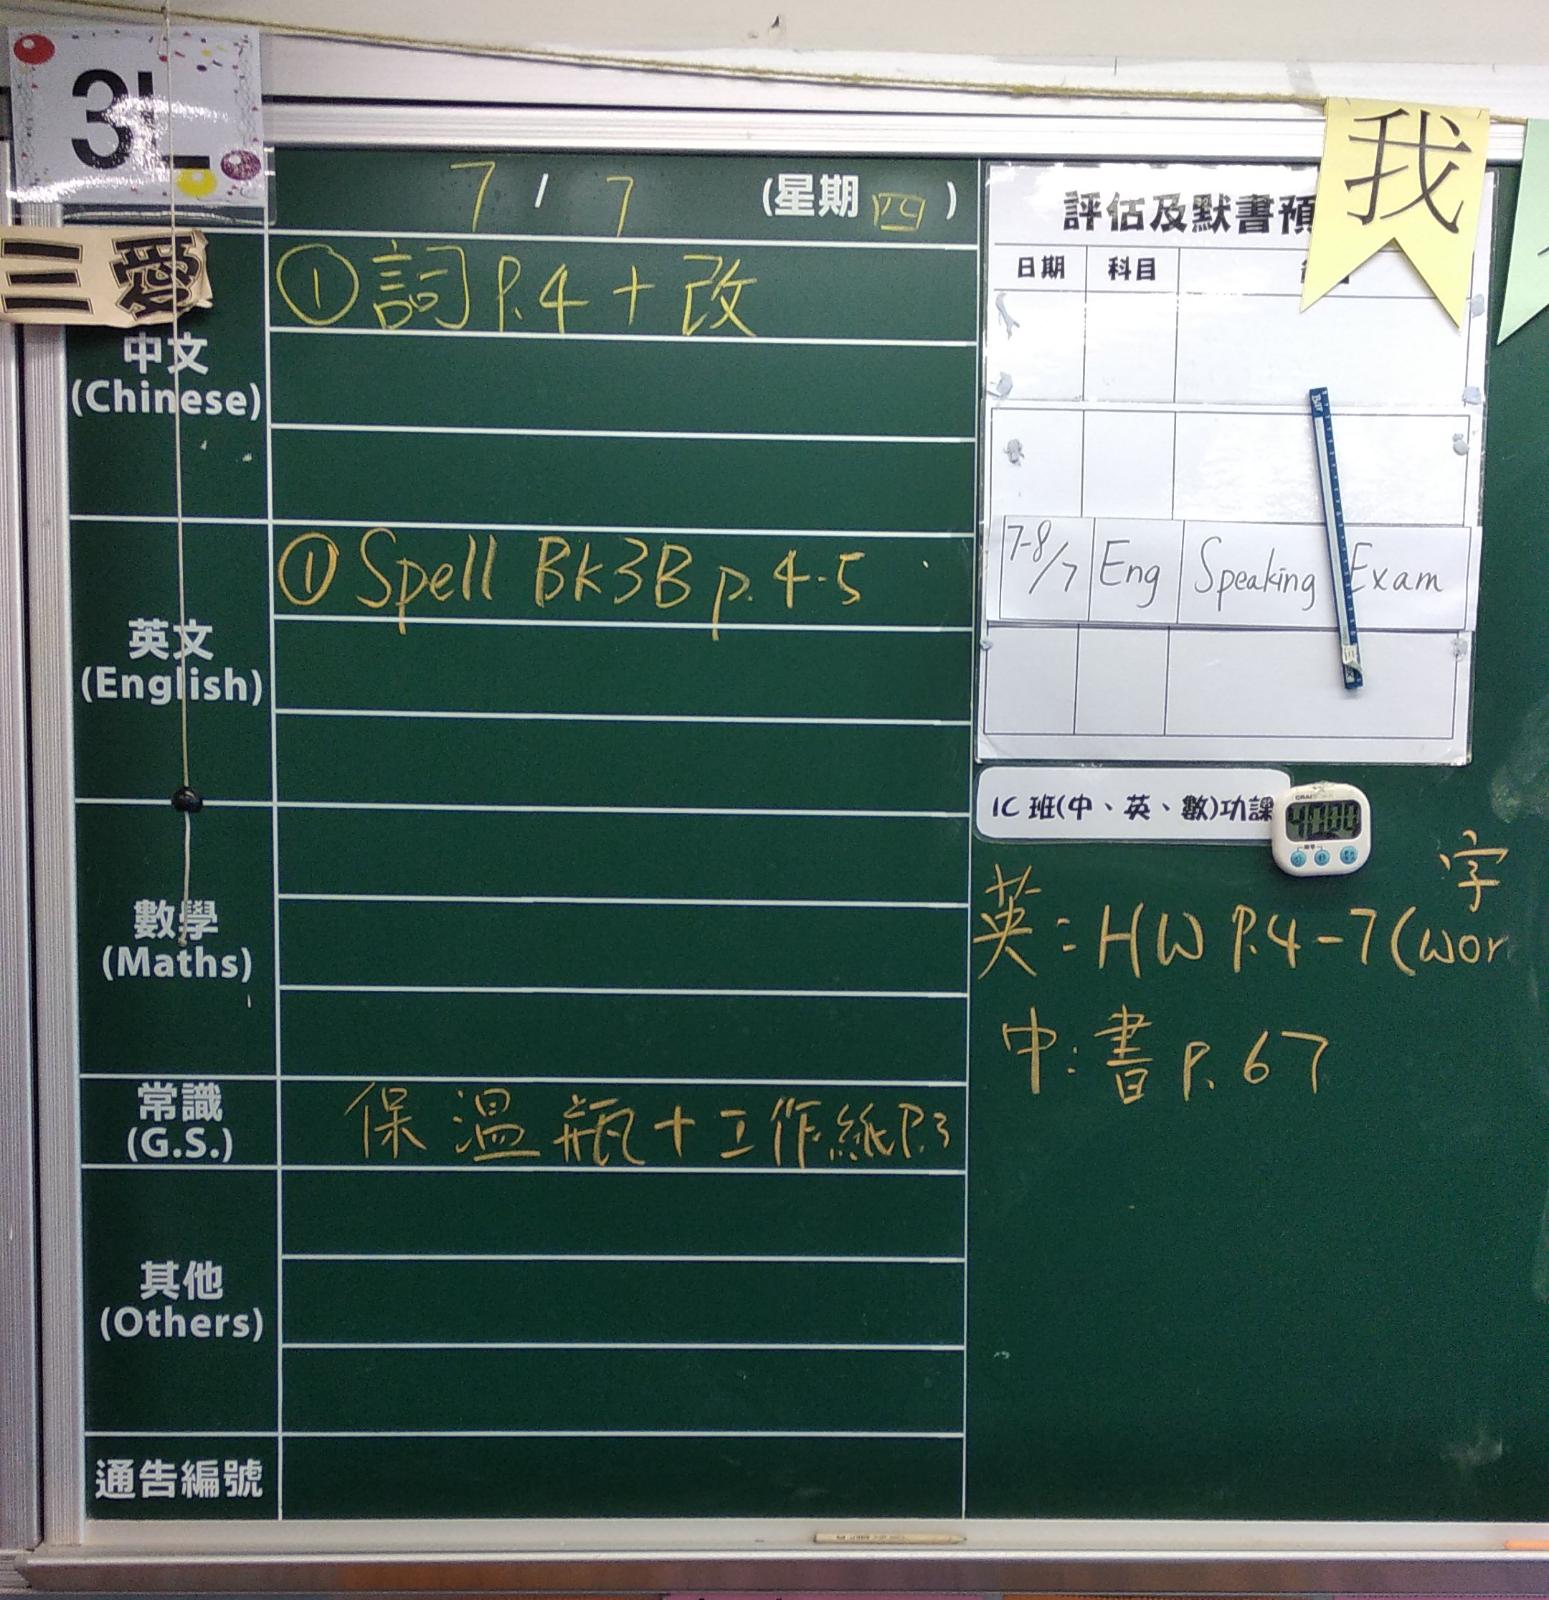 3L
三愛
我
7 / 7 (星期四)
中文
(Chinese)
①詞 P.4 + 改
英文
(English)
① Spell Bk3B p.4-5
數學
(Maths)
常識
(G.S.)
保溫瓶+工作紙P.3
其他
(Others)
通告編號
評估及默書預
日期 科目
7-8/7 Eng Speaking Exam
1C 班(中、英、數)功課
40:00
字
英: HW P.4-7(wor
中: 書 P.67